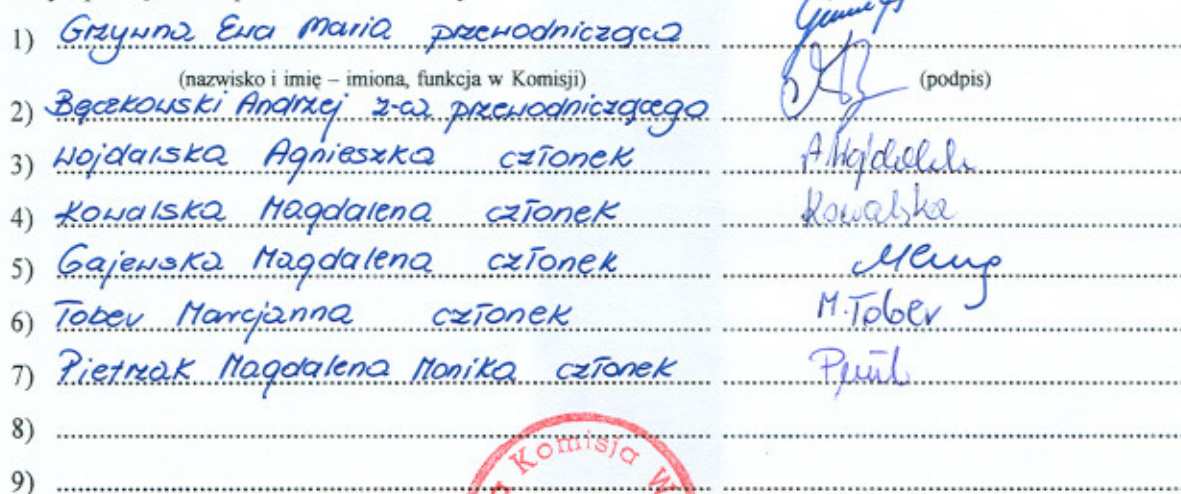 1) Grzywna Ewa Maria przewodnicząca
(nazwisko i imię – imiona, funkcja w Komisji) (podpis)
2) Bączkowski Andrzej z-ca przewodniczącego
3) Wojdalska Agnieszka członek
4) Kowalska Magdalena członek Kowalska
5) Gajewska Magdalena członek
6) Tober Marcjanna członek M. Tober
7) Pietrzak Magdalena Monika członek
8)
9)
Komisja W